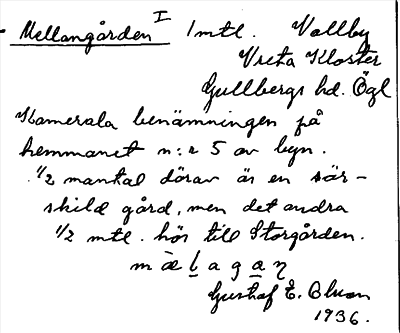 Mellangården I 1 mtl. Vallby
Vreta Kloster
Gullbergs hd. Ögl
Kamerala benämningen på
hemmanet n:r 5 av byn.
1/2 mantal därav är en sär-
skild gård, men det andra
1/2 mtl. hör till Storgården.
mæ̀lagaŋ
Gustaf E. Olson
1936.